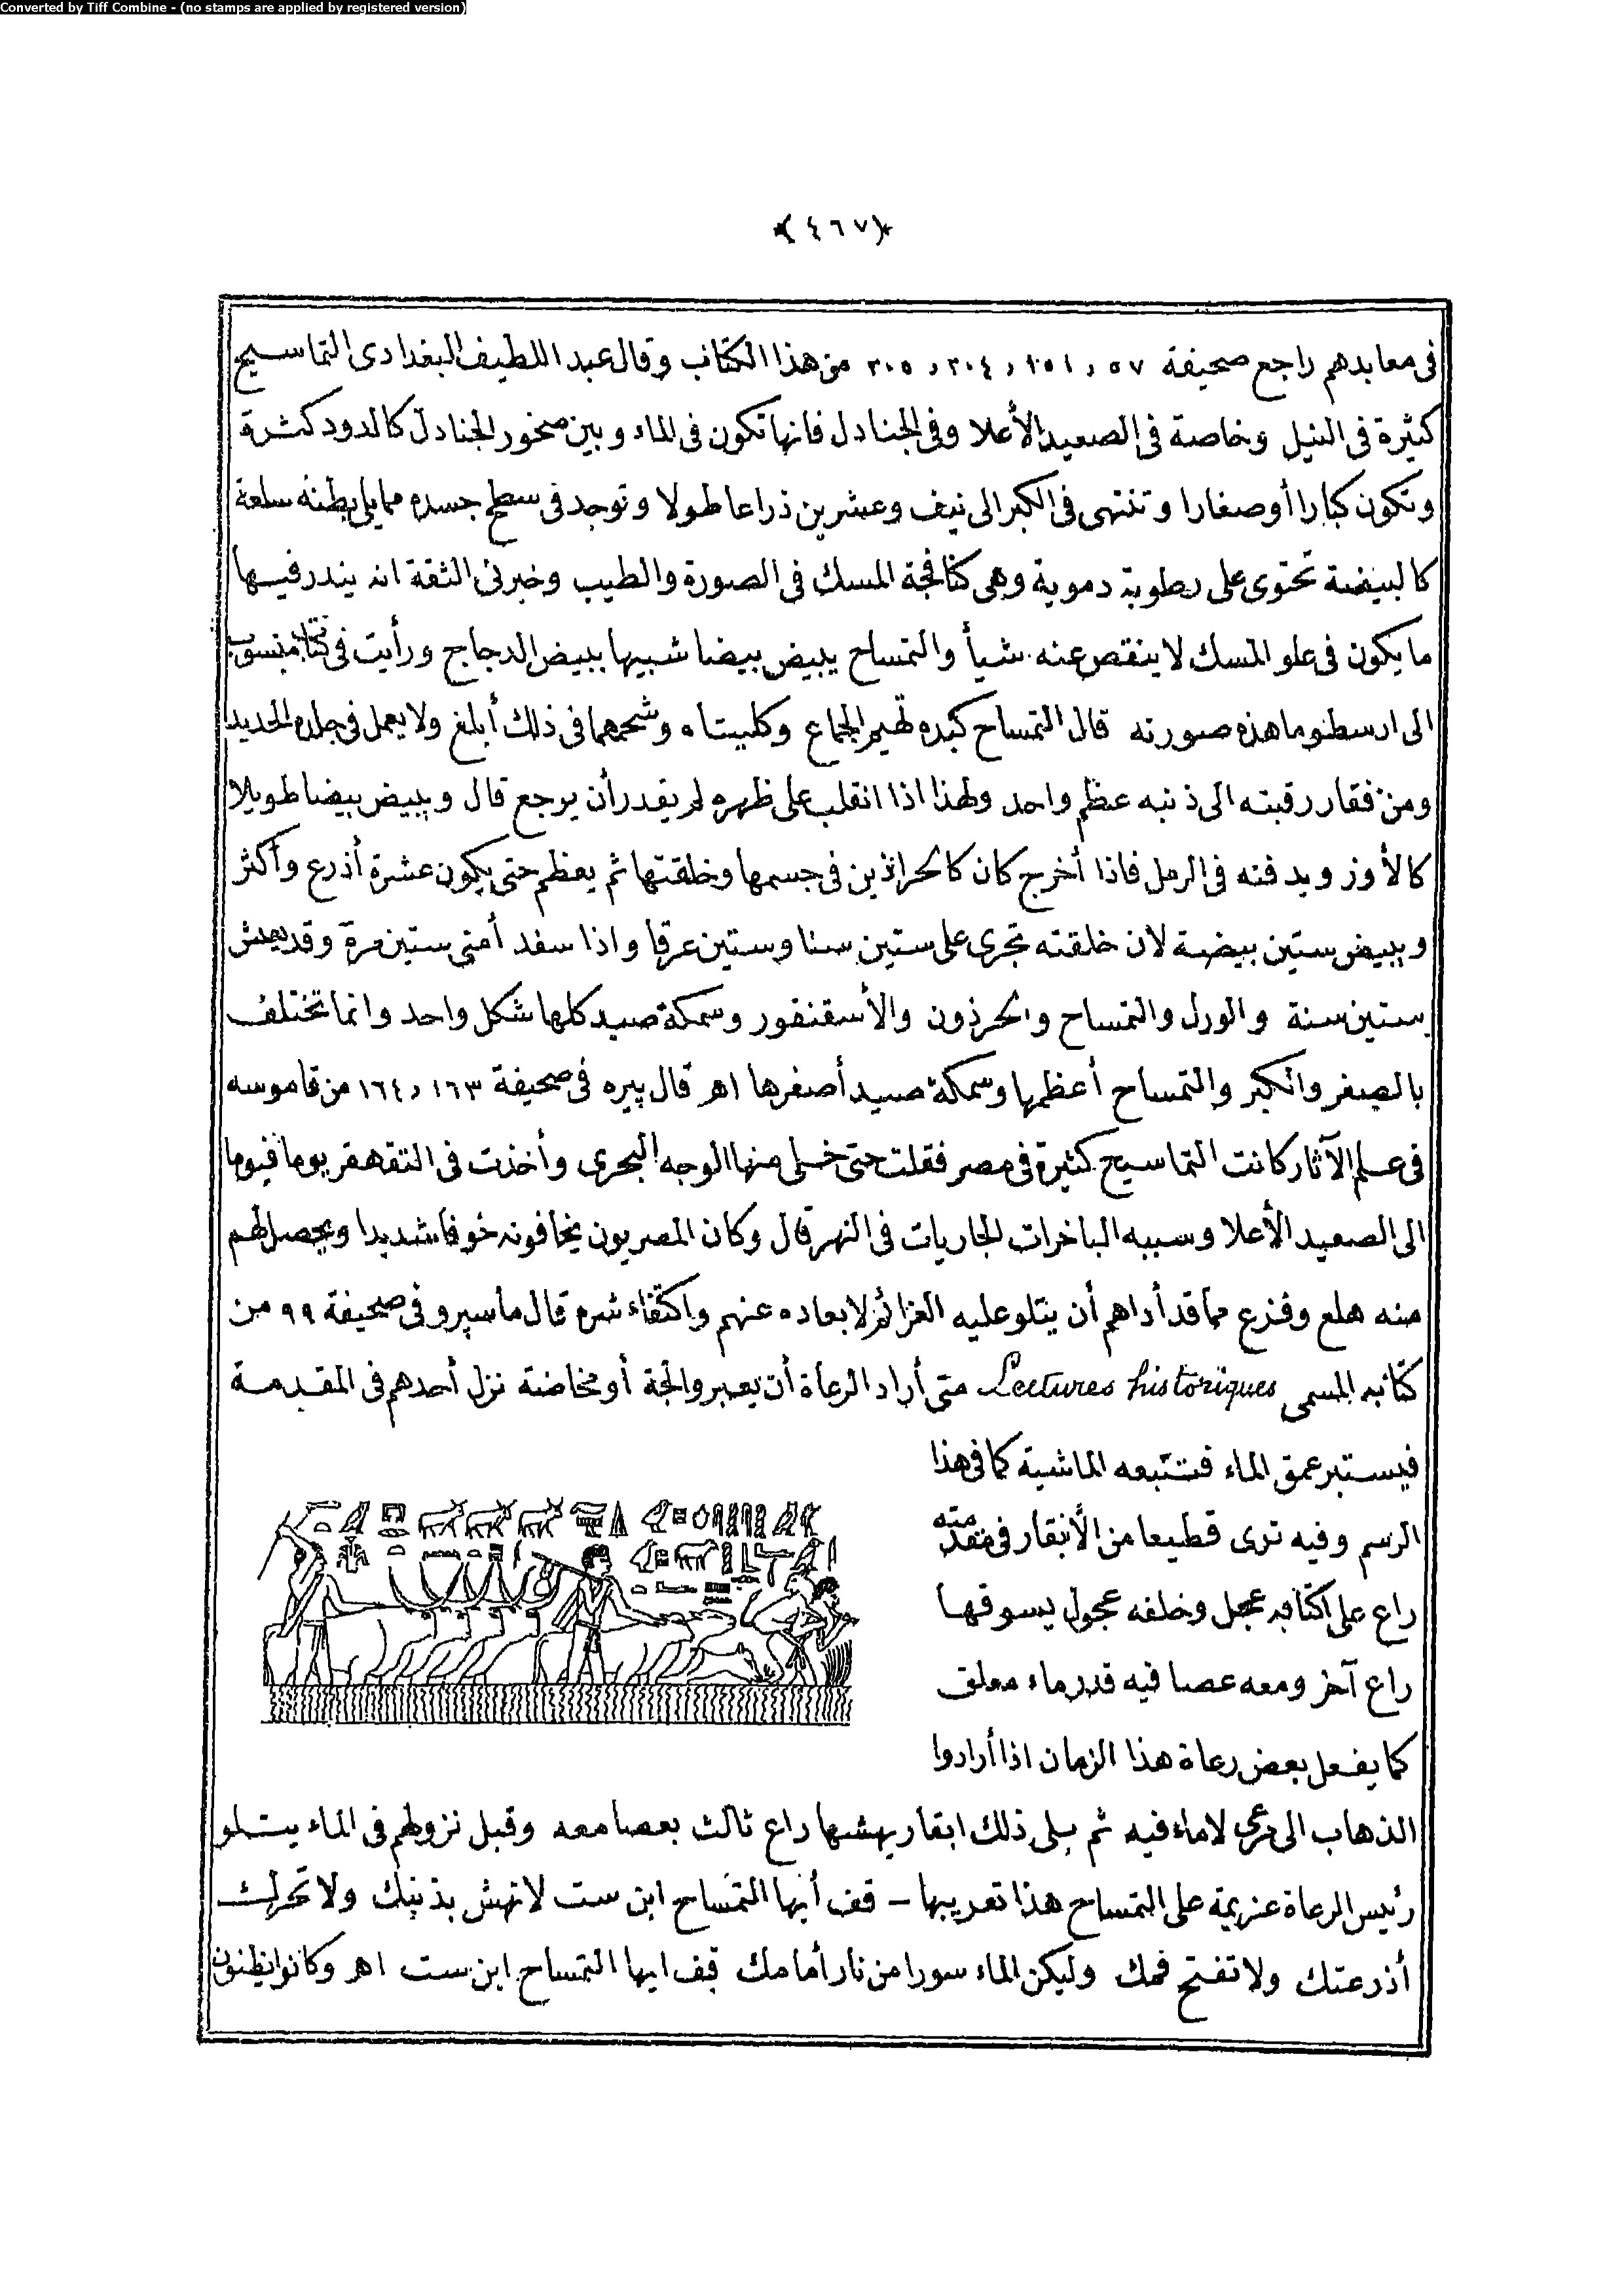 Converted by Tiff Combine - (no stamps are applied by registered version)
﴿٤٦٧﴾
فى معابدهم راجع صحيفة ٥٧ , ٢٥١ , ٣٠٤ , ٣٠٥ من هذا الكتاب وقال عبد اللطيف البغدادى التماسيح
كثيرة فى النيل وخاصة فى الصعيد الأعلا وفى الجنادل فانها تكون فى الماء وبين صخور الجنادل كالدود كثرة
وتكون كبارا أو صغارا وتنتهى فى الكبر الى نيف وعشرين ذراعا طولا وتوجد فى سطح جسده مما يلى بطنه سلعة
كالبيضة تحتوى على رطوبة دموية وهى كنافجة المسك فى الصورة والطيب وخبرنى الثقة انه يندر فيها
ما يكون فى علو المسك لا ينقص عنه شيأ والتمساح يبيض بيضا شبيها ببيض الدجاج ورأيت فى كتاب منسوب
الى ارسطو ما هذه صورته قال التمساح كبده تهيم الجماع وكليتاه وشحمهما فى ذلك أبلغ ولا يعمل فى جلده الحديد
ومن فقار رقبته الى ذنبه عظم واحد ولهذا اذا انقلب على ظهره لم يقدر أن يرجع قال ويبيض بيضا طويلا
كالأوز ويدفنه فى الرمل فاذا أخرج كان كالحراذين فى جسمها وخلقتها ثم يعظم حتى يكون عشرة أذرع وأكثر
ويبيض ستين بيضة لان خلقته تجرى على ستين سنا وستين عرقا واذا سفد أمنى ستين مرة وقد يعيش
ستين سنة والورل والتمساح والحرذون والأسقنقور وسمكة صيد كلها شكل واحد وانما تختلف
بالصغر والكبر والتمساح أعظمها وسمكة صيد أصغرها اهـ قال پيره فى صحيفة ١٦٣ , ١٦٤ من قاموسه
فى علم الآثار كانت التماسيح كثيرة فى مصر فقلت حتى خلى منها الوجه البحرى وأخذت فى التقهقر يوما فيوما
الى الصعيد الأعلا وسببه الباخرات الجاريات فى النهر قال وكان المصريون يخافونه خوفا شديدا ويحصل لهم
منه هلع وفزع مما قد أداهم أن يتلو عليه العزائم لابعاده عنهم واكتفاء شره قال ماسپرو فى صحيفة ٩٩ من
كتابه المسمى Lectures historiques متى أراد الرعاة أن يعبروا لجة أو مخاضة نزل أحدهم فى المقدمة
فيستبر عمق الماء فتتبعه الماشية كما فى هذا
الرسم وفيه ترى قطيعا من الأبقار فى مقدمته
راع على اكتافه عجل وخلفه عجول يسوقها
راع آخر ومعه عصا فيه قدر ماء معلق
كما يفعل بعض رعاة هذا الزمان اذا أرادوا
الذهاب الى مرعى لا ماء فيه ثم يلى ذلك ابقار يهشها راع ثالث بعصا معه وقبل نزولهم فى الماء يتلو
رئيس الرعاة عزيمة على التمساح هذا تعريبها – قف أيها التمساح ابن ست لا تهش بذنبك ولا تحرك
أذرعتك ولا تفتح فمك وليكن الماء سورا من نار أمامك قف ايها التمساح ابن ست اهـ وكانوا يظنون